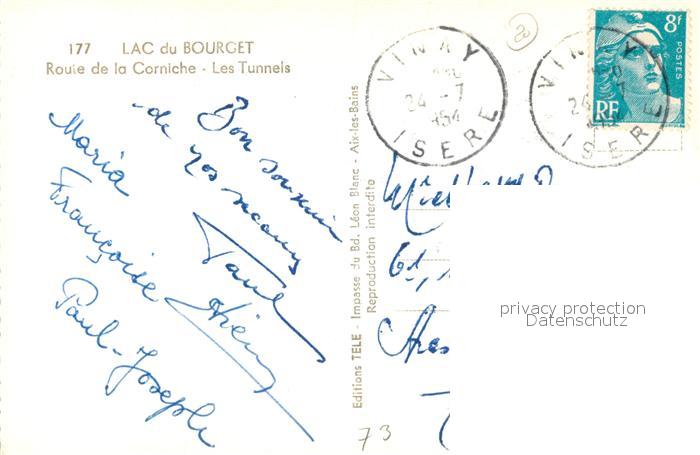 177 LAC du BOURGET
Route de la Corniche - Les Tunnels
Bon souvenir
de nos vacances
Paul
Maria
Françoise
Paul-Joseph
Editions TELE - Impasse du Bd. Léon Blanc - Aix-les-Bains
Reproduction interdite
VINAY
24 - 7
1954
ISERE
VINAY
ISERE
8f
POSTES
RF
61,
privacy protection
Datenschutz
73